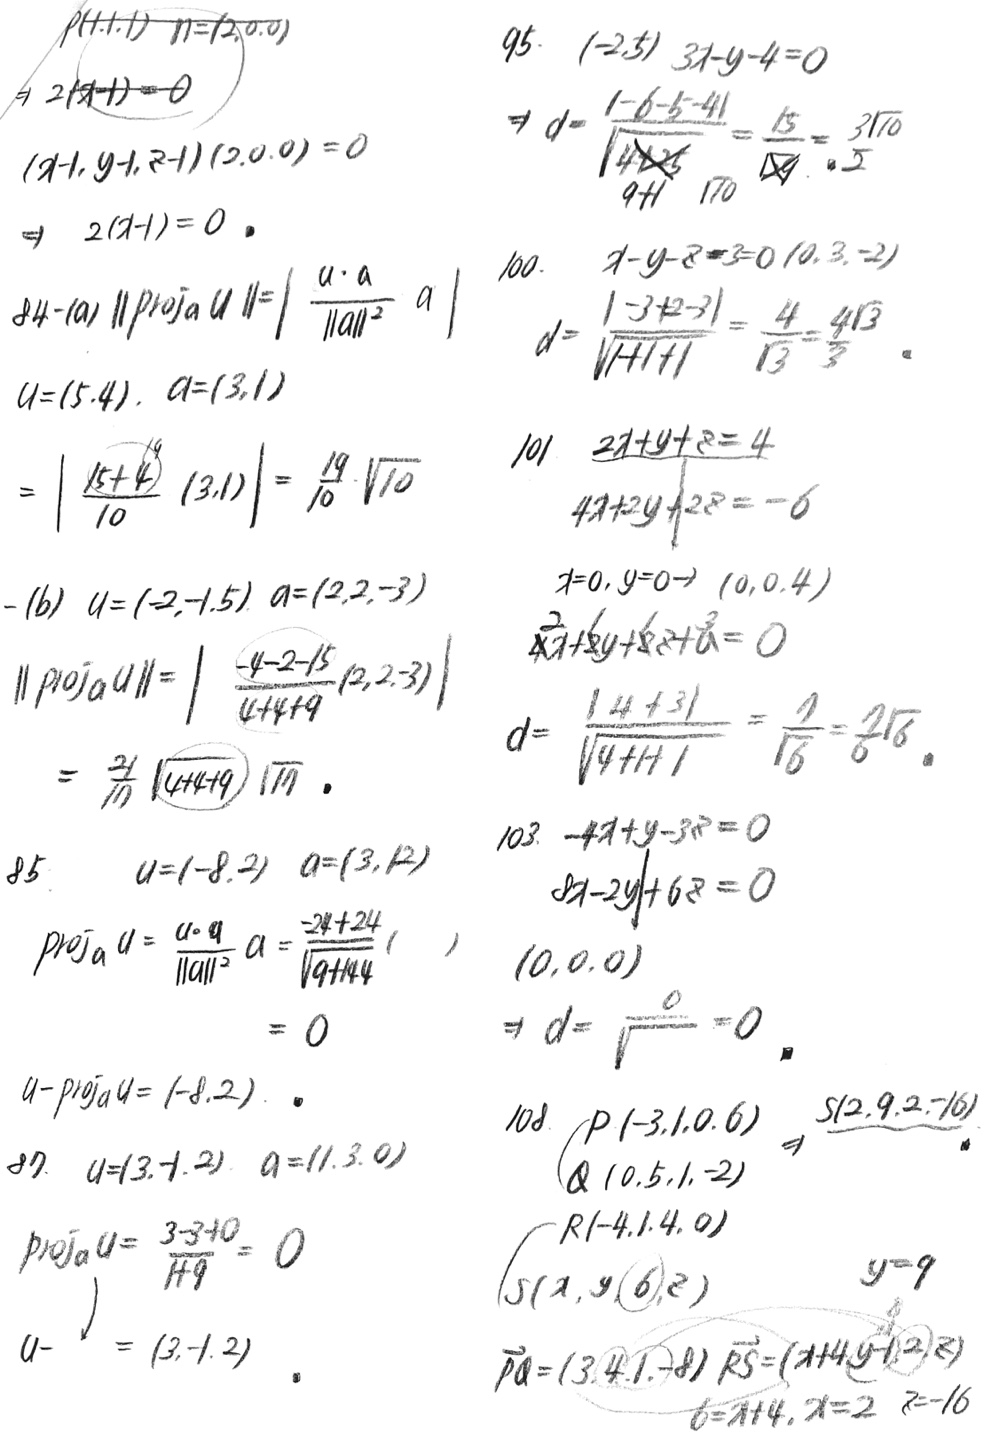 P(1.1.1) n=(2.0.0)
⇒ 2(x-1)=0
(x-1, y-1, z-1)(2.0.0)=0
⇒ 2(x-1)=0 .
84-(a) ||proj_a u||=| u·a / ||a||² a |
u=(5.4). a=(3,1)
= | 15+4 / 10 (3,1) | = 19/10 · √10
19
-(b) u=(-2,-1.5) a=(2,2,-3)
||proj_a u||= | -4-2-15 / 4+4+9 (2,2,-3) |
= 21/17 √(4+4+9) √17 .
85 u=(-8.2) a=(3,12)
proj_a u = u·a / ||a||² a = -24+24 / √(9+144) ( )
= 0
u-proj_a u=(-8.2) .
87. u=(3.-1.2) a=(1.3.0)
proj_a u= 3-3+0 / 1+9 = 0
u- = (3.-1.2) .
95. (-2,5) 3x-y-4=0
⇒ d= |-6-5-4| / √(4+25) = 15 / = 3√10 / 2 .
9+1 √10
100. x-y-z-3=0 (0.3.-2)
d= |-3+2-3| / √(1+1+1) = 4/√3 = 4√3 / 3 .
101 2x+y+z=4
4x+2y+2z=-6
x=0, y=0→ (0,0.4)
2 3
4x+2y+2z+6=0
d= |4+3| / √(4+1+1) = 7/√6 = 7/6 √6 .
103. -4x+y-3z=0
8x-2y+6z=0
(0,0.0)
⇒ d= 0/√ =0 .
108. P(-3.1.0.6) ⇒ S(2.9.2.-16) .
Q(0.5.1.-2)
R(-4.1.4.0)
S(x, y, 6, z) y=9
PQ=(3.4.1.-8) RS=(x+4, y-1, 2, z)
6=x+4, x=2 z=-16